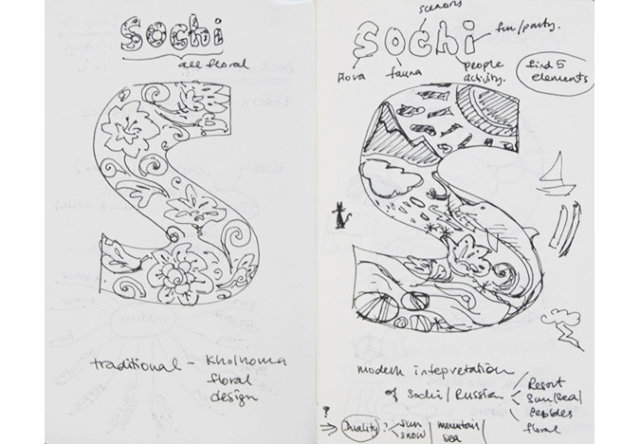 Sochi
all floral
S
traditional - Khohoma
floral
design
scenery
Sochi
fun/party.
flora
fauna
people
activity.
find 5
elements
S
modern intepretation
of Sochi / Russian
Resort
Sun/Sea/
Pebbles
floral
?
⇒ Duality?
sun
snow / mountain/
sea